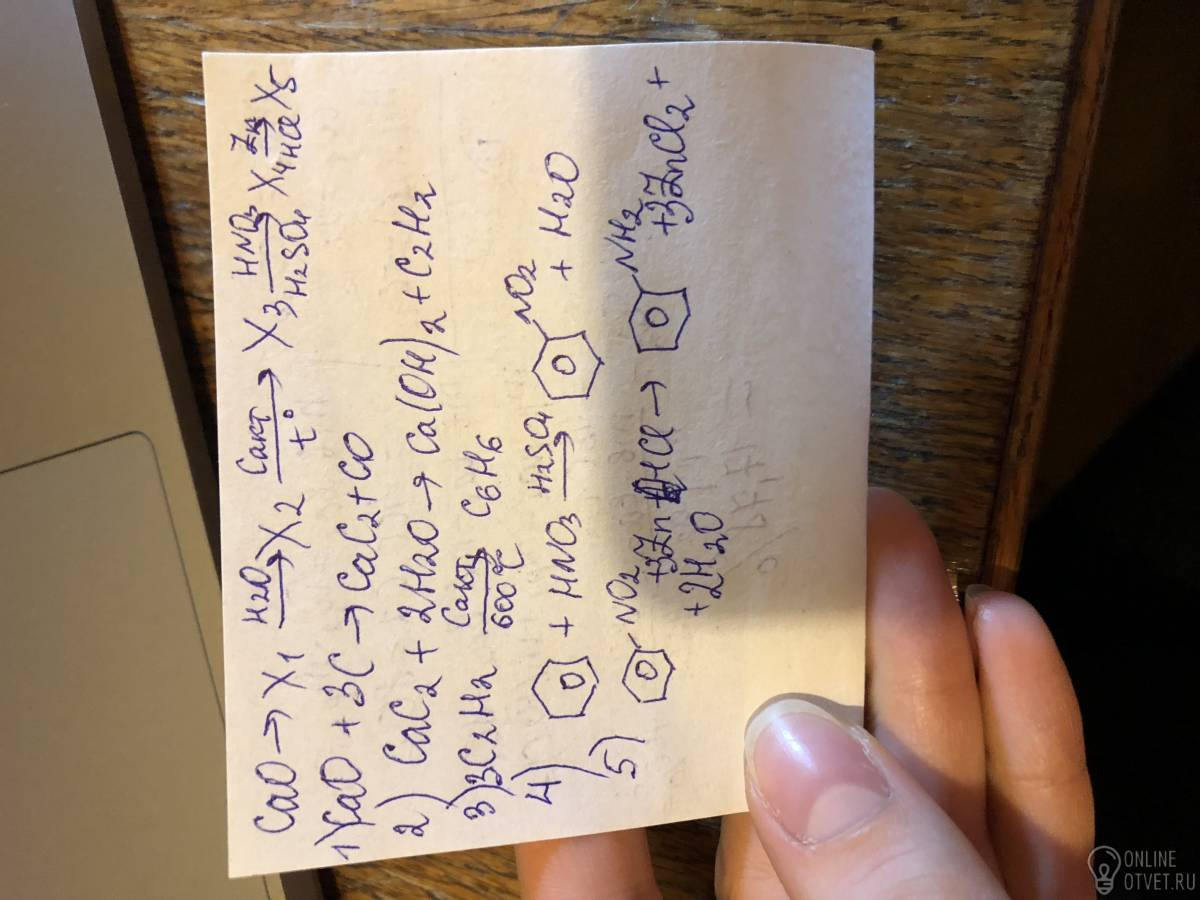 CaO → X1 H2O→ X2 Cакт→ t° X3 HNO3→ H2SO4 X4 Zn→ HCl X5
1) CaO + 3C → CaC2 + CO
2) CaC2 + 2H2O → Ca(OH)2 + C2H2
3) 3C2H2 Cакт→ 600°C C6H6
4) + HNO3 H2SO4→ NO2 + H2O
5) NO2 +3Zn+ HCl → NH2 +3ZnCl2 +
+ 2H2O
ONLINE
OTVET.RU